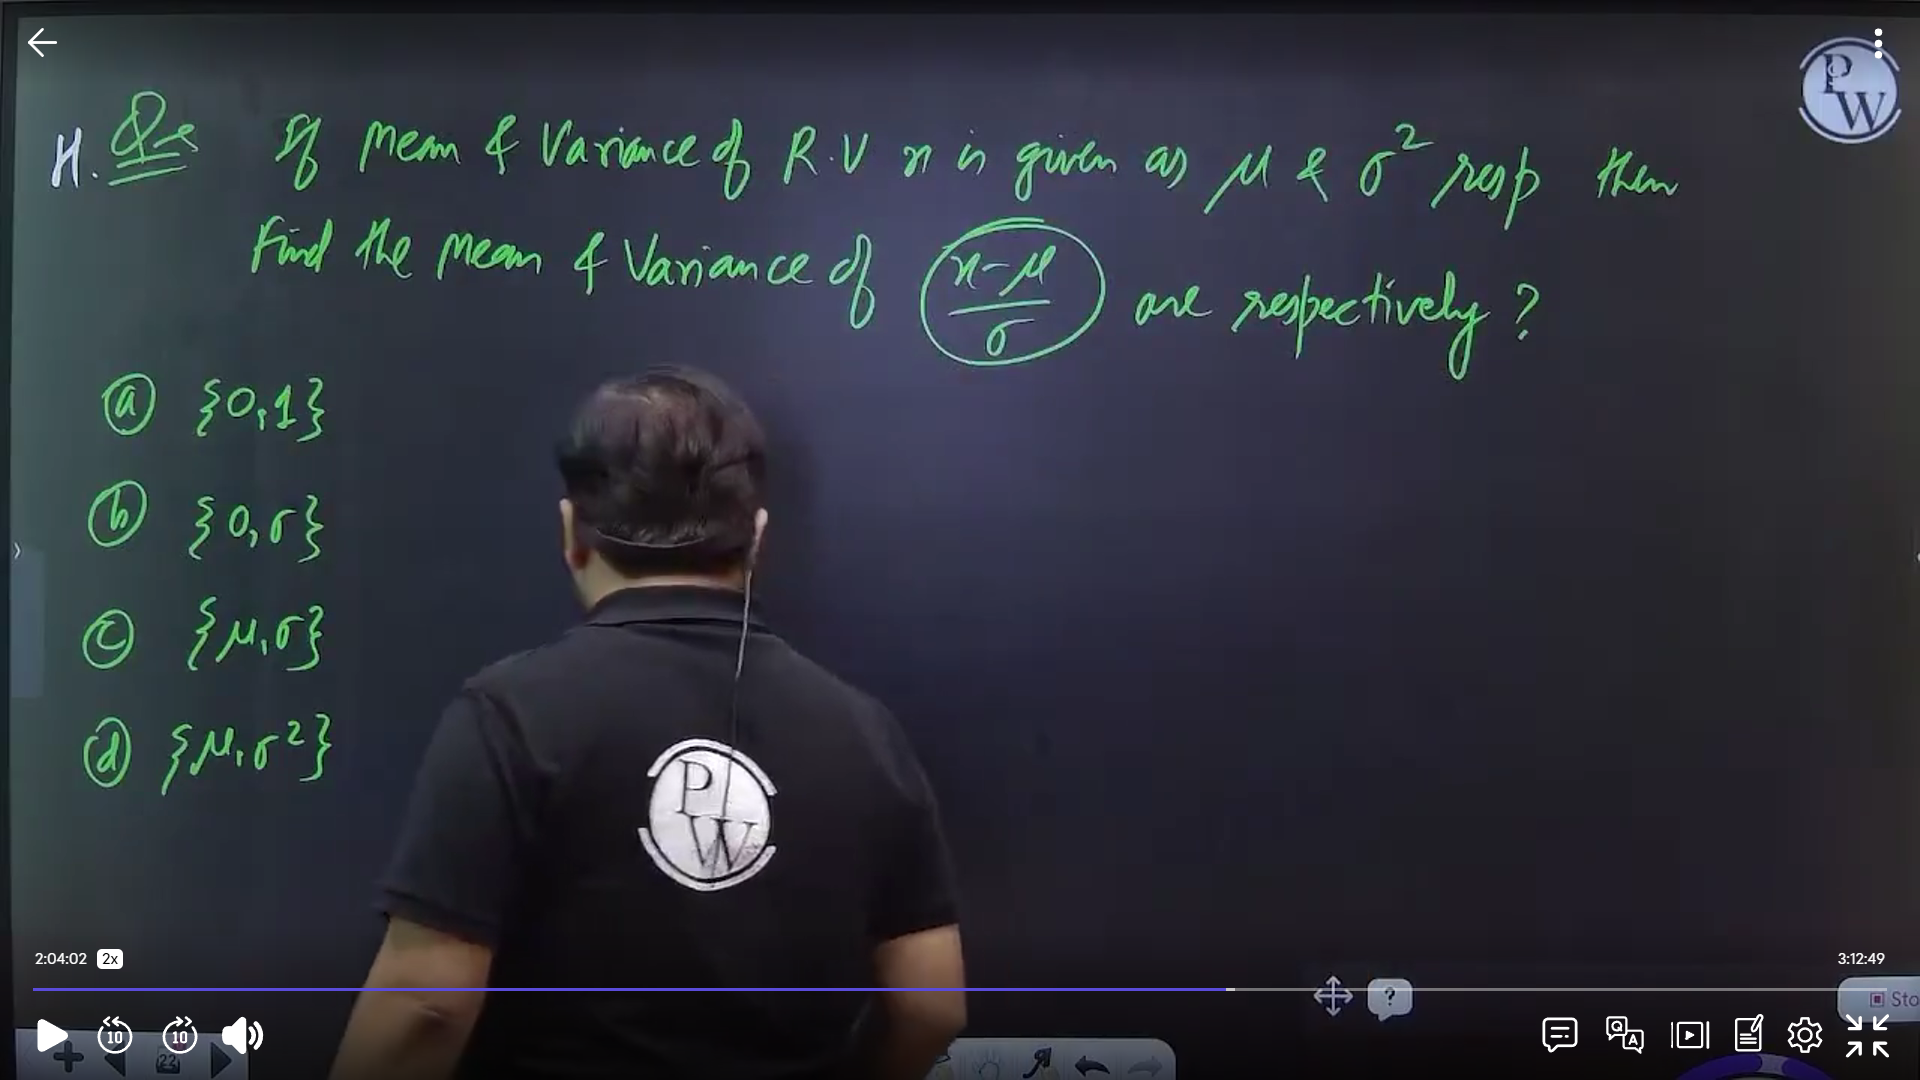 H. Qs If Mean & Variance of R.V x is given as μ & σ² resp then
Find the Mean & Variance of (x-μ)/σ are respectively ?
ⓐ {0,1}
ⓑ {0,σ}
ⓒ {μ,σ}
ⓓ {μ,σ²}
PW
PW
2:04:02 2x
3:12:49
?
Sto
10
10
Q A
22